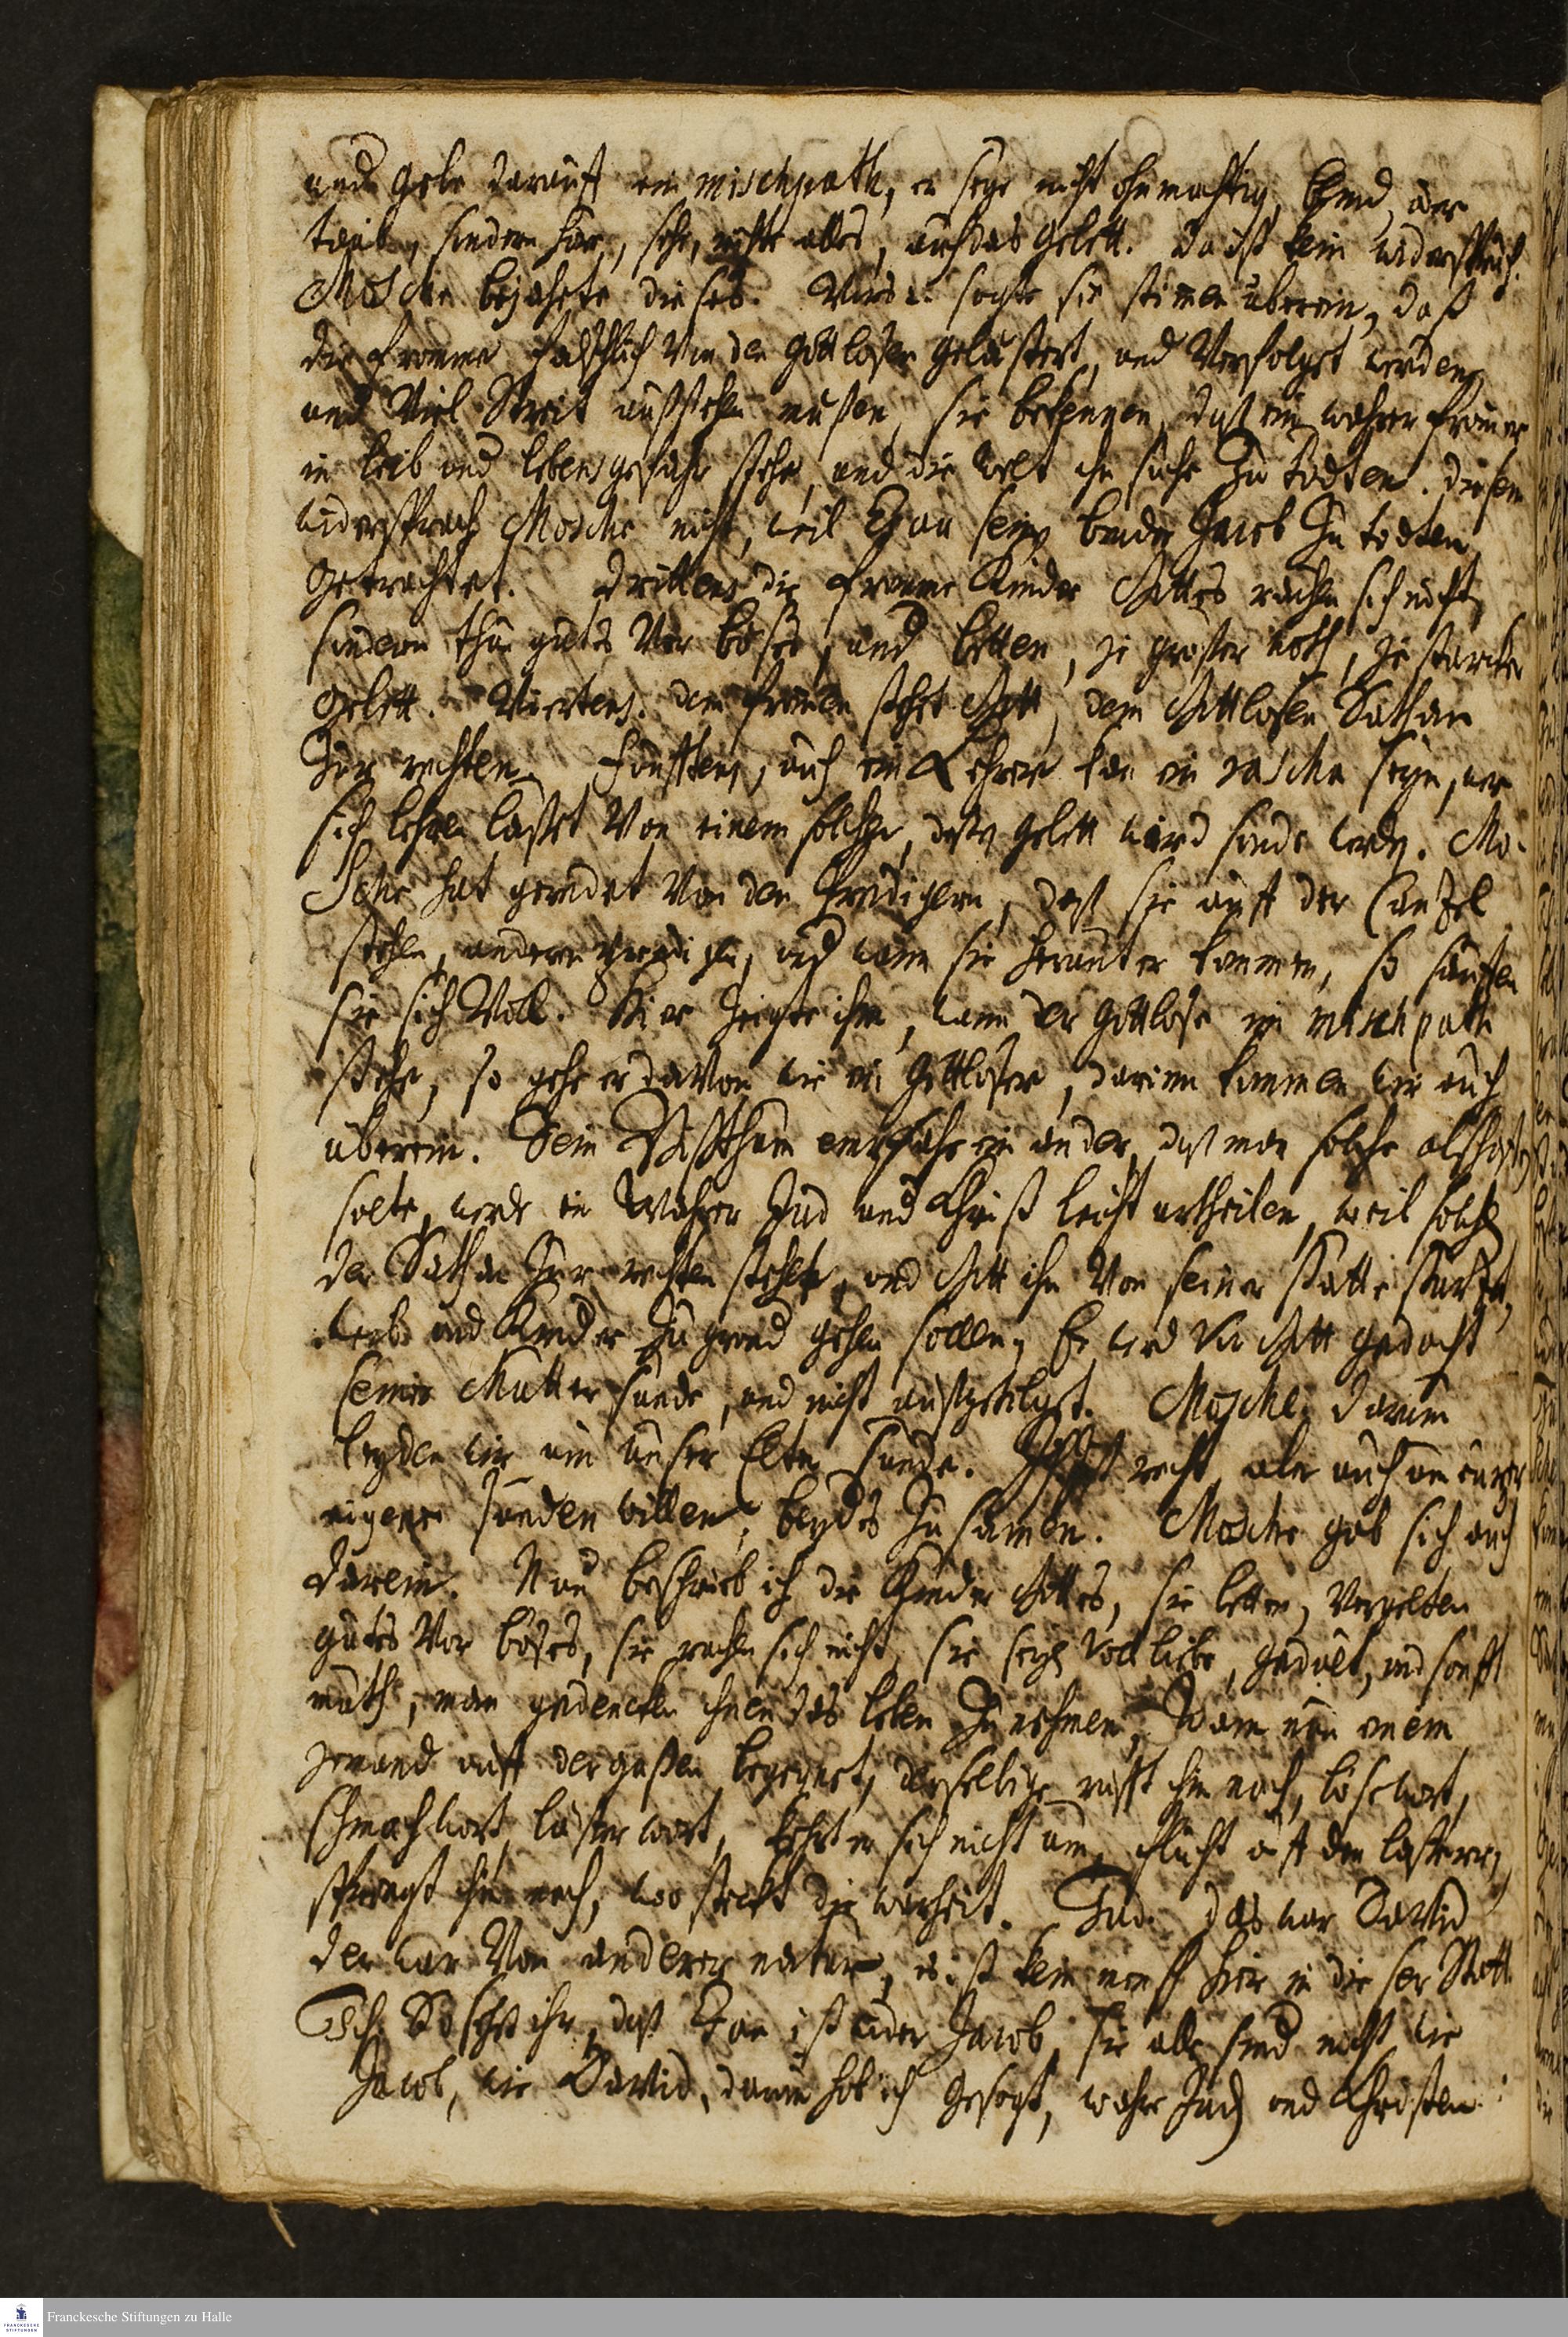 und gebe darauff ein mischpath, er seye nicht ohnmachtig, blind, oder
taub, sondern hör, sehe, richte alles, auch das gebett. Da ist kein widerspruch.
Mosche bejahete dieses. Vers 2. sagte sie stimen überein, daß
die fromme falschlich von den Gottlosen gelästert, und verfolgt werden,
und viel Streit außstehn mußen, sie bekennen, daß ein wahrer fromer
in leib und lebens gefahr stehe, und die welt ihn suche zu todten. diesem
widersprach Mosche nicht, weil Esau seinen bruder Jacob zu todten
getrachtet. Drittens die fromme Kinder Gottes rächen sich nicht,
sondern thun guts vor böses, und betten, je großer noth, je starcker
gebett. Viertens. dem fromen stehet Gott, dem Gottlosen Sathan
zur rechten. Funfftens, auch ein Lehrer kan ein rascha seyn, wer
sich lehren lasset von einem solchen, deßen gebett wird sünde werden. Mo-
sche hat geredet von den Predigern, daß sie auff der Canzel
stehen, andern predigen, und wann sie herunter kommen, so sauffen
sie sich voll. Hier zeigte ihm, wann der gottlose im mischpath
stehe, so gehe er davon wie ein Gottloser, darinn kommen wir auch
überein. Sein Bisthum empfahe ein ander, daß man solche abschaffen
solte, werde ein wahrer Jud und Christ leicht urtheilen, weil solchen
der Sathan zur rechten stehet, und Gott ihn von seiner statte sturzet,
weib und Kinder zu grund gehen sollen, Es wird vor Gott gedacht
seiner Mutter sünde, und nicht außgetilget. Mosche: darum
leyden wir um unser Elter sünde. Ich: Ist recht, aber auch um eurer
eigene sünden willen, beydes zusamen. Mosche gab sich auch
darein. Nun beschrieb ich die Kinder Gottes, sie betten, vergelten
gutes vor böses, sie rächen sich nicht, sie seyen voll liebe, gedult, und sanfft
muth, man gedencke ihnen das leben zu nehmen, Wann nun einem
jemand auff der gaßen begegnet, derselbige rufft ihm nach, böse wort,
schmach wort, läster wort, kehret er sich nicht um, flucht auff den lasterer,
springt ihm nach, wo steckt die warheit. Jud: das war David
der war von anderer natur, es ist kein mensch hier in dieser Statt.
Ich: So sehet ihr, daß Esau ist wider Jacob, sie alle sind nicht wie
Jacob, wie David, darum hab ich gesagt, wahre Juden und Christen:
Franckesche Stiftungen zu Halle